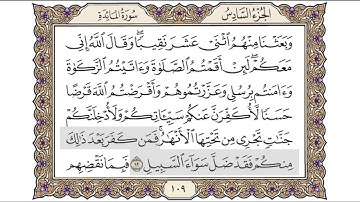 الجزء السادس
سورة المائدة
وبعثنا منهم اثني عشر نقيبا وقال الله إني
معكم لئن أقمتم الصلوة وءاتيتم الزكوة
وءامنتم برسلي وعزرتموهم وأقرضتم الله قرضا
حسنا لأكفرن عنكم سيئاتكم ولأدخلنكم
جنات تجري من تحتها الأنهار فمن كفر بعد ذلك
منكم فقد ضل سواء السبيل ١٢ فبما نقضهم
١٠٩